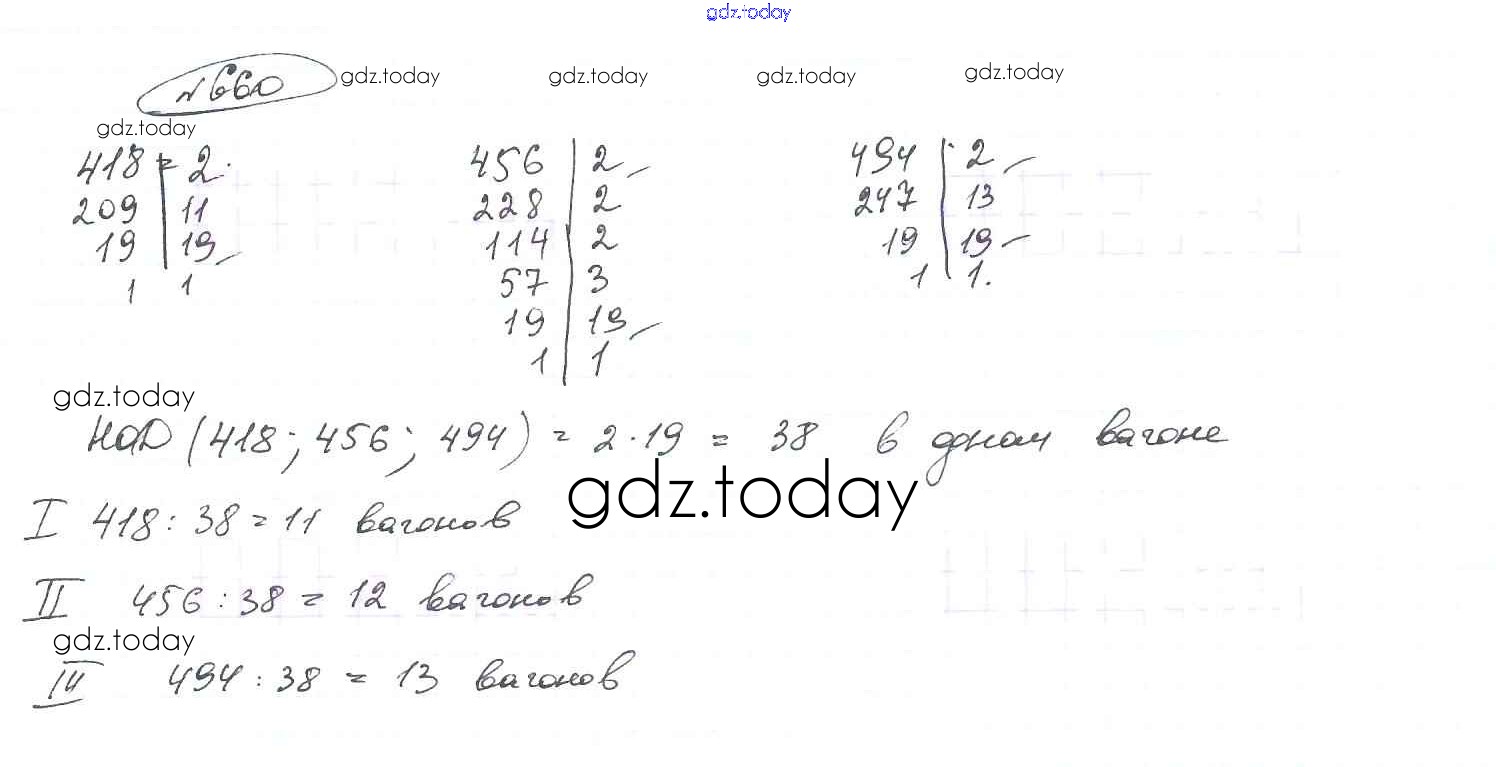 gdz.today
№660
gdz.today gdz.today gdz.today gdz.today
gdz.today
418 2
209 11
19 19
1 1
456 2
228 2
114 2
57 3
19 19
1 1
494 2
247 13
19 19
1 1.
gdz.today
НОД (418; 456; 494) = 2·19 = 38 в одном вагоне
gdz.today
I 418 : 38 = 11 вагонов
II 456 : 38 = 12 вагонов
gdz.today
III 494 : 38 = 13 вагонов